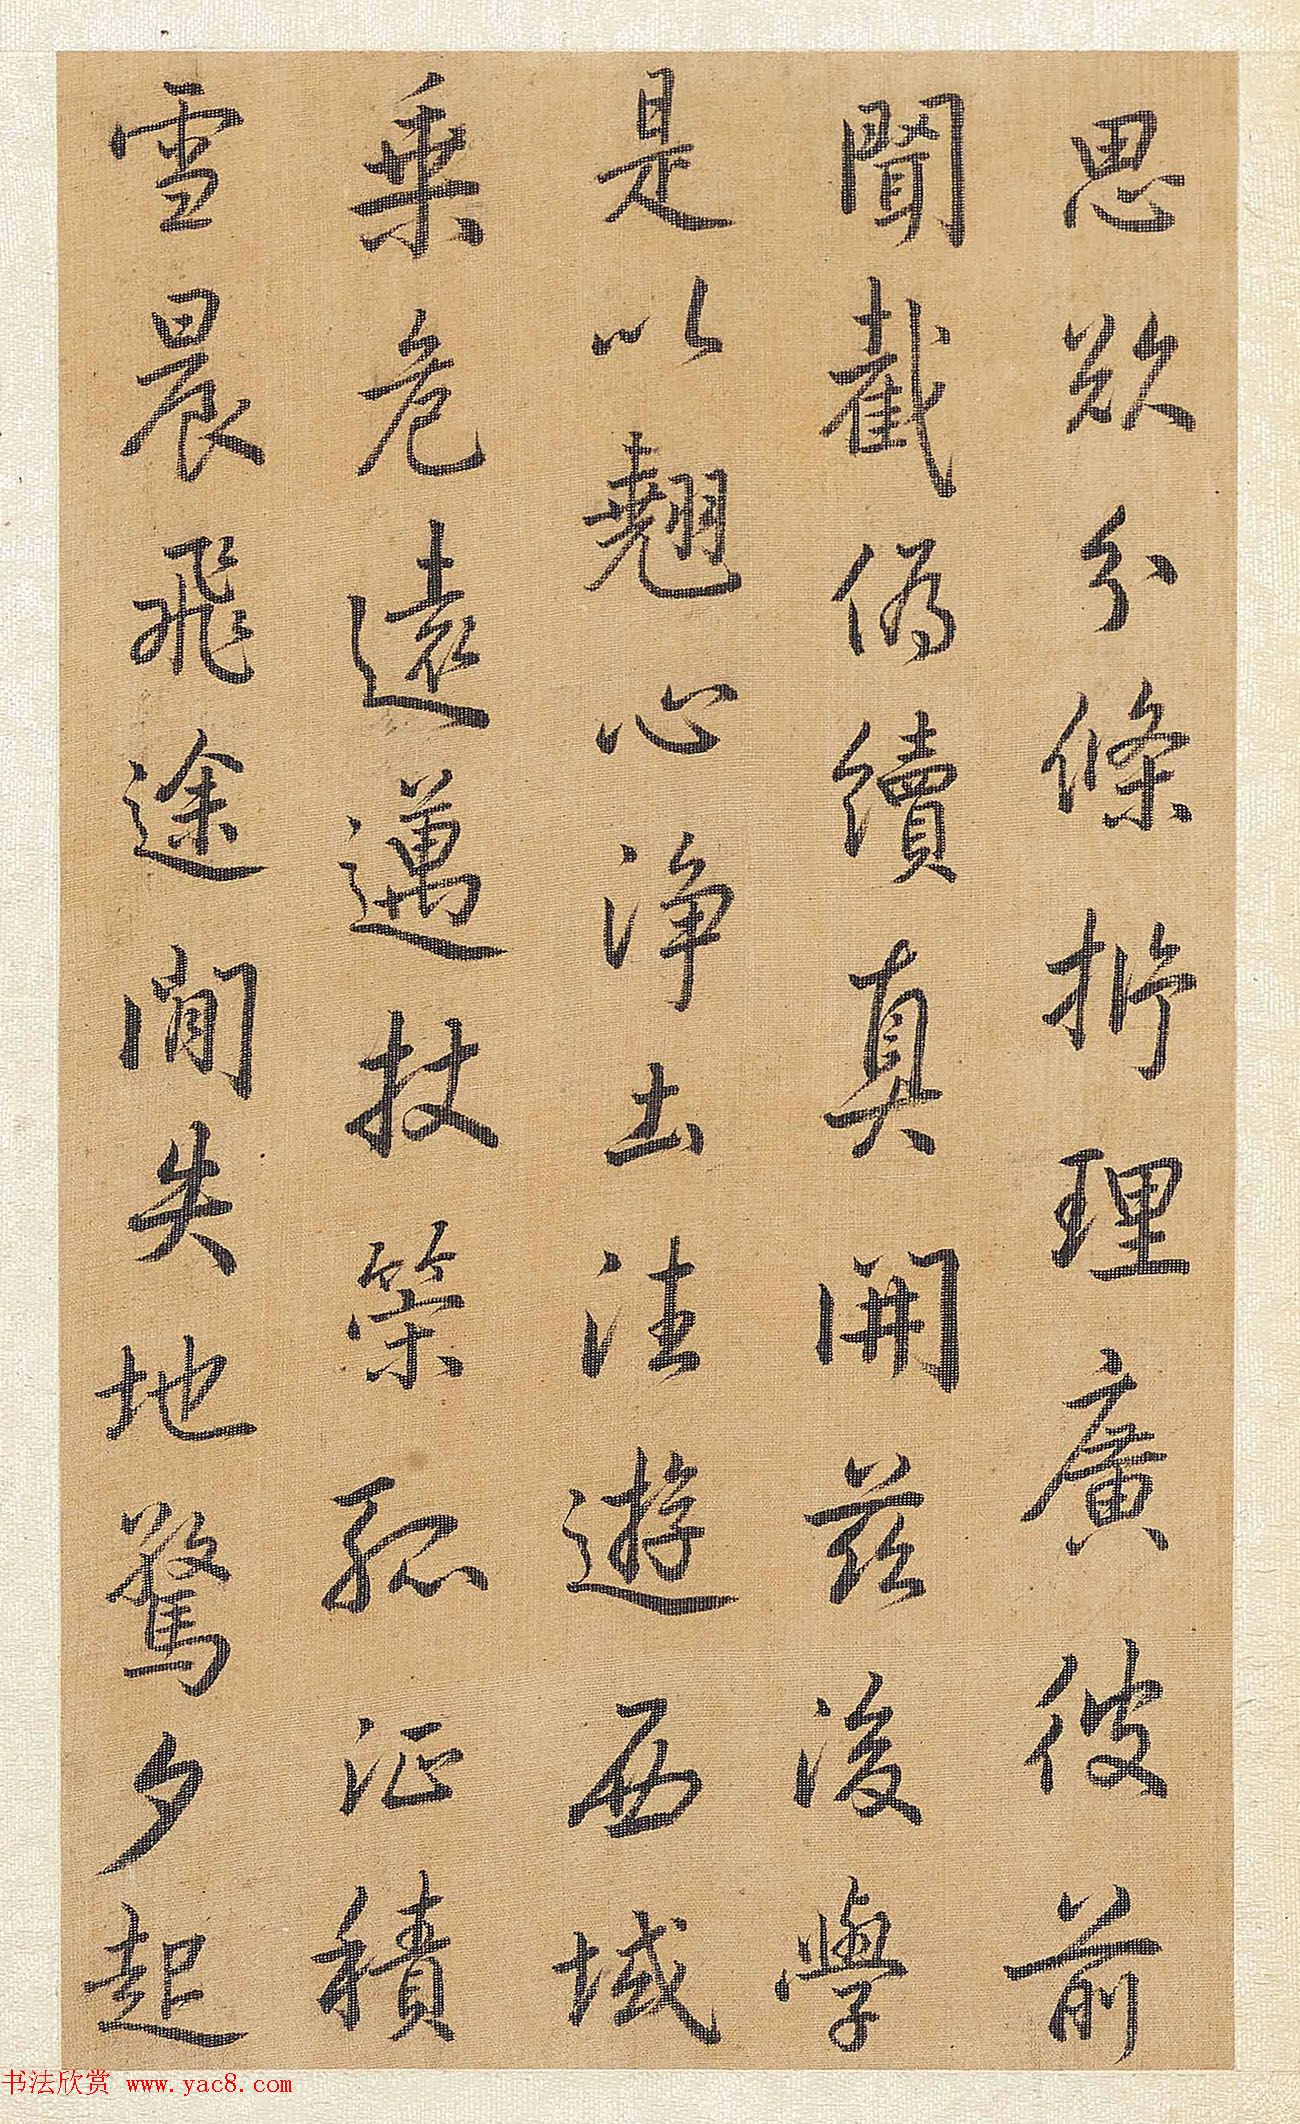 思欲分條析理廣彼前
聞截偽續真開茲後學
是以翹心浄土法遊西域
乗危遠邁杖策孤征積
雪晨飛途間失地驚夕起
书法欣赏 www.yac8.com